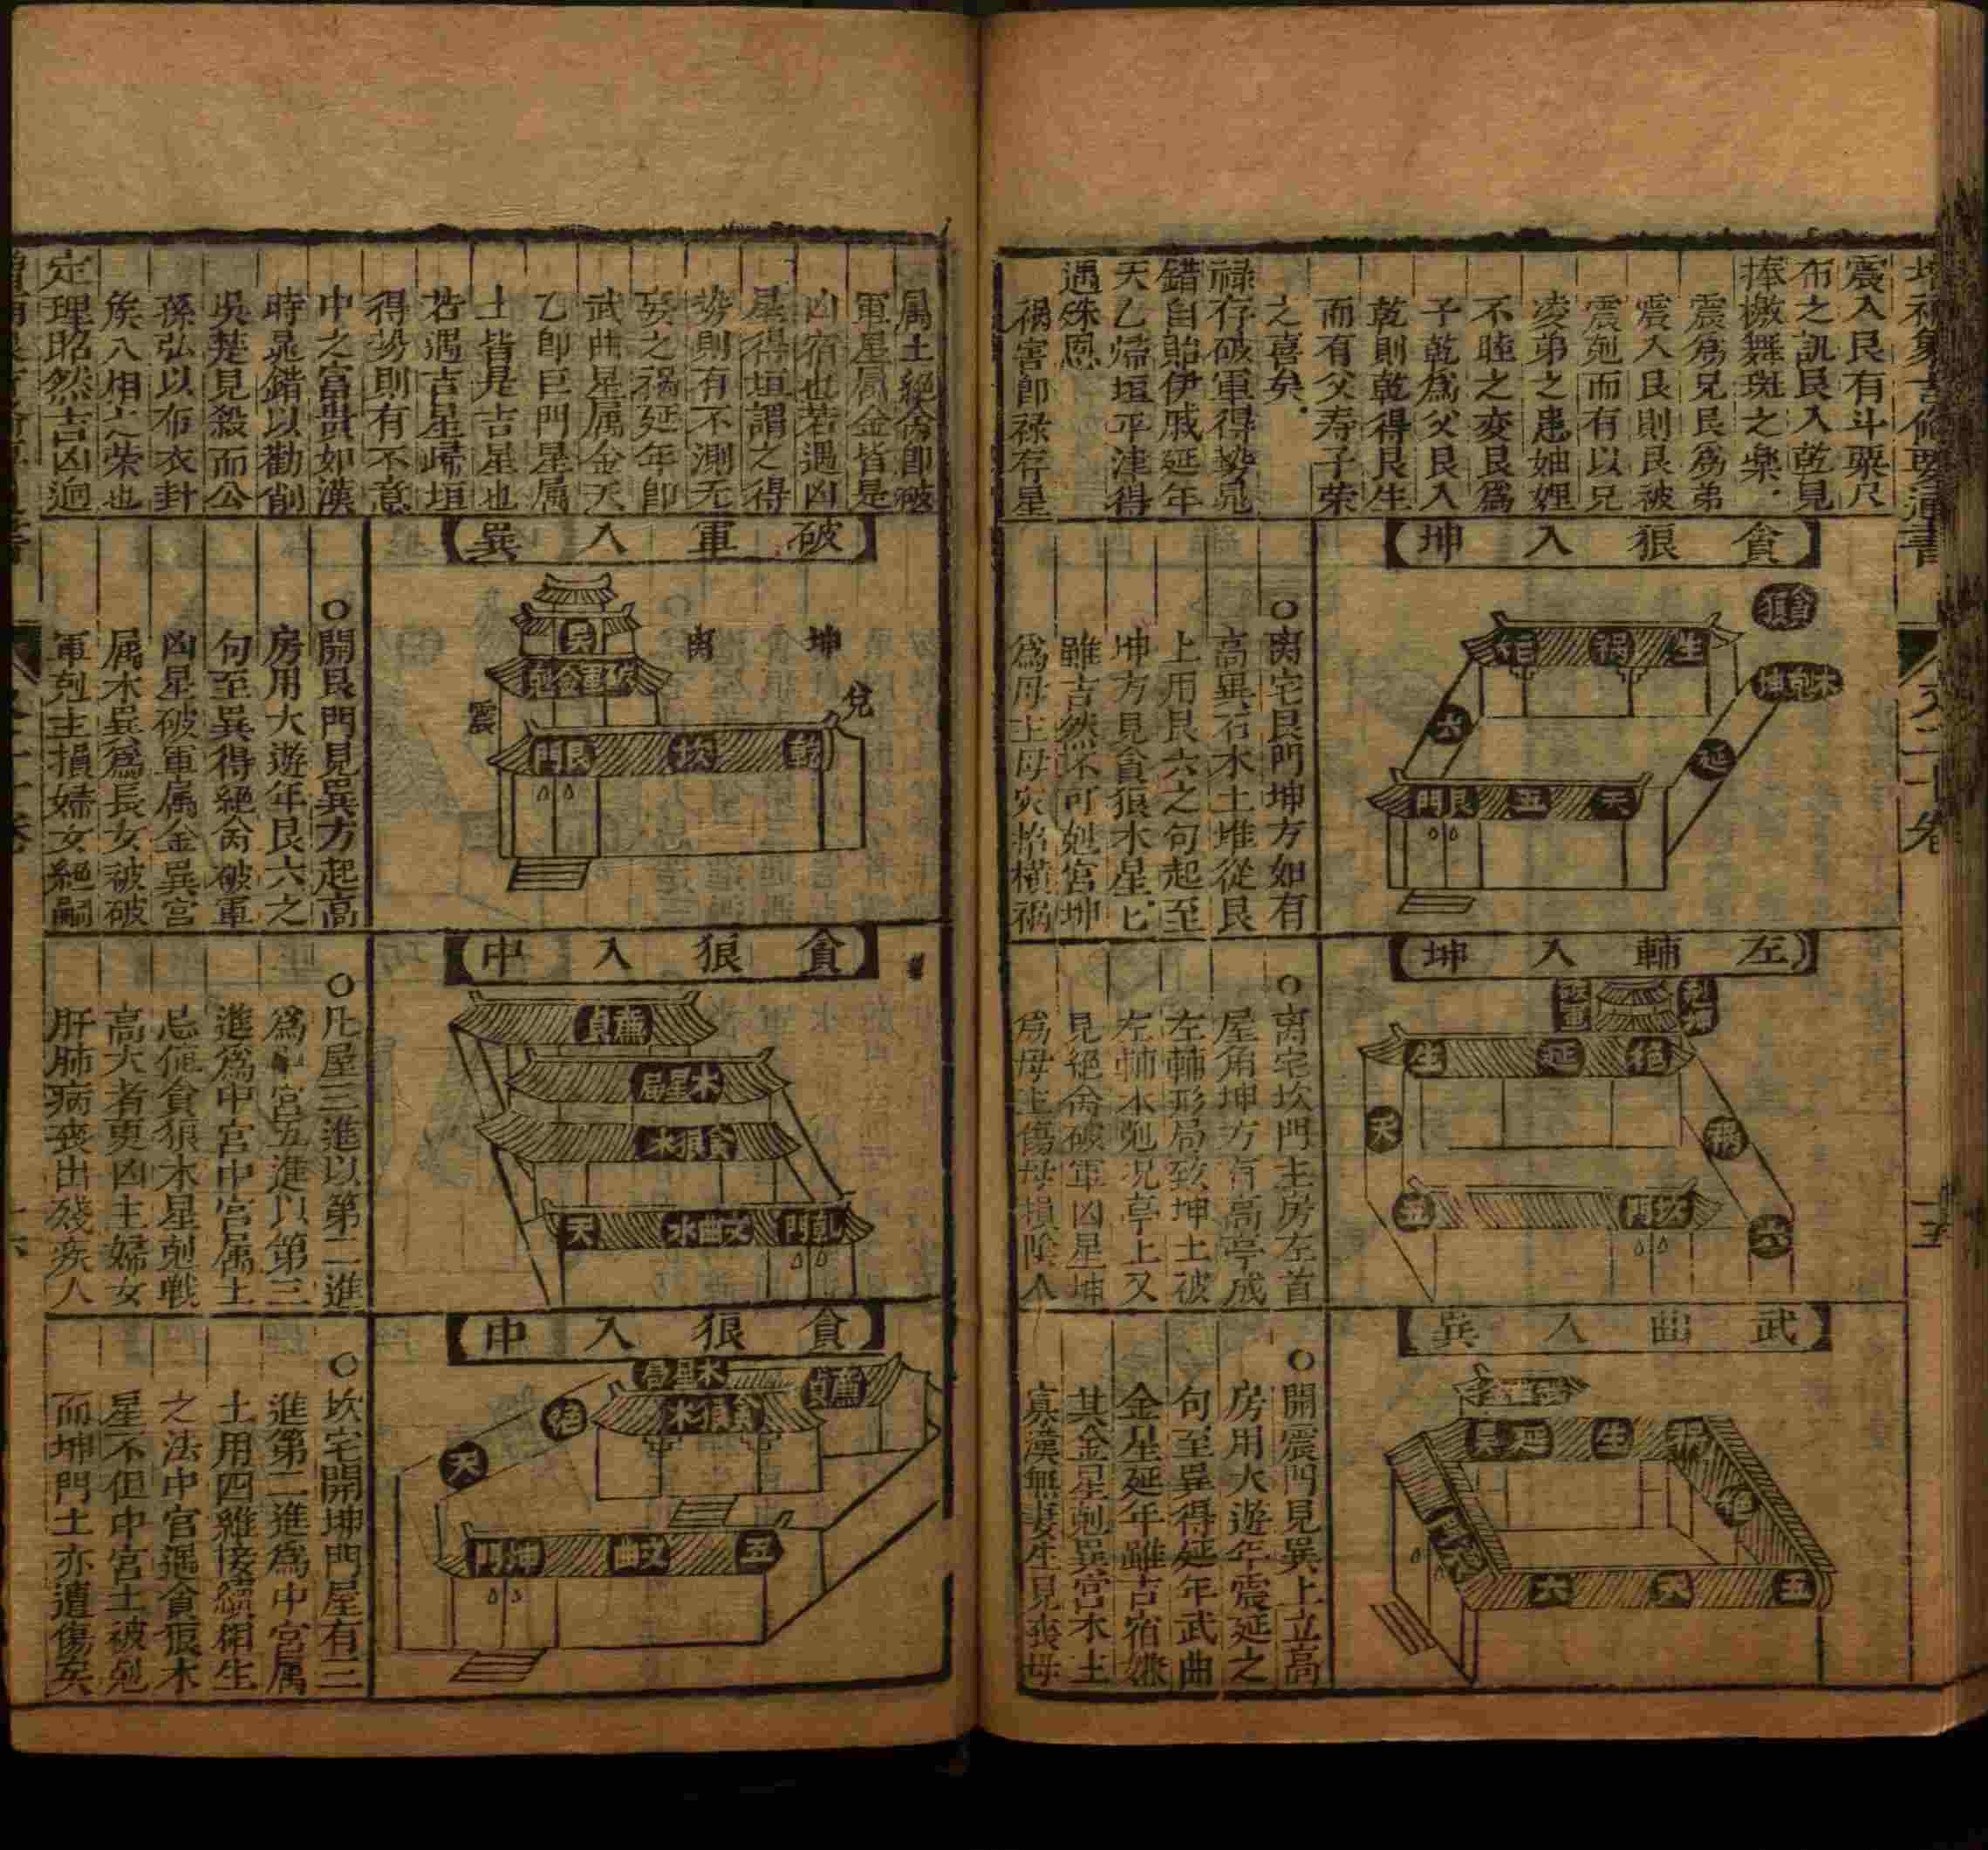 震入艮有斗粟尺
布之訊艮入乾見
捧檄舞斑之樂
震為兄艮為弟
震入艮則艮被
震剋而有以兄
凌弟之患妯娌
不睦之变艮為
子乾為父艮入
乾則乾得艮生
而有父寿子荣
之喜矣
禄存破軍得势晁
錯自貽伊戚延年
天乙㷌垣平津得
遇殊恩
禍害卽禄存星
坤入狼貪
貪狼
木剋坤
生 禍
六 延
門艮 五 天
○离宅艮門坤方如有
高巽石木土堆從艮
上用艮六之句起至
坤方見貪狼木星
雖吉然不可剋宮坤
為母主母灾招橫禍
坤入輔左
生 延 絕
天 禍
五 門坎 六
○离宅坎門主房左首
屋角坤方有高亭成
左輔形局致坤土被
左輔木剋况亭上又
見絕命破軍凶星坤
為母主傷母損陰人
巽入曲武
延 生 禍
絕
六 天 五
○開震門見巽上立高
房用大遊年震延之
句至巽得延年武曲
金星延年雖吉宿嫌
其金星剋巽宮木主
寡漢無妻生見喪母
属土絕命卽破
軍星属金皆是
凶宿也若遇凶
星得垣謂之得
势則有不測无
妄之禍延年卽
武曲星属金天
乙卽巨門星属
土皆是吉星也
若遇吉星歸垣
得势則有不意
中之富貴如漢
時晁錯以勸削
吳楚見殺而公
孫弘以布衣封
侯入相之荣也
定理昭然吉凶逈
巽入軍破
天
震 离 坤 兌
門艮 坎 乾
○開艮門見巽方起高
房用大遊年艮六之
句至巽得絕命破軍
凶星破軍属金巽宮
属木巽為長女被破
軍剋主損婦女絕嗣
中入狼貪
貞廉
局星木
木狼貪
天 水曲文 門乾
○凡屋三進以第二進
為中宮五進以第三
進為中宮中宮属土
忌值貪狼木星剋戰
高大者更凶主婦女
肝肺病喪出殘疾人
中入狼貪
局星木
貞廉
木狼貪
絕 天
門坤 曲文 五
○坎宅開坤門屋有三
進第二進為中宮属
土用四維接續相生
之法中宮遇貪狼木
星不但中宮土被剋
而坤門土亦遭傷矣